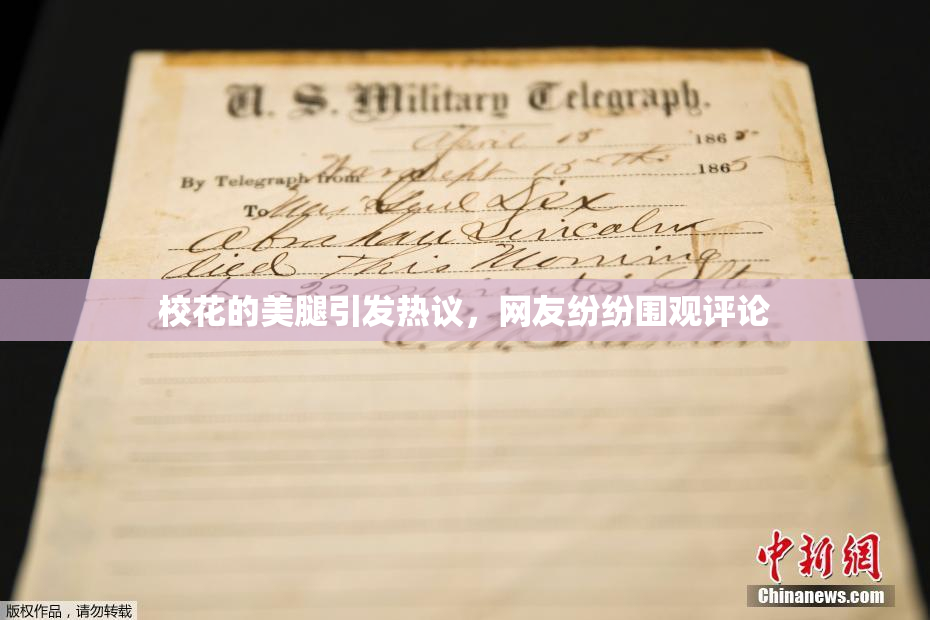 U. S. Military Telegraph.
April 15 1865
By Telegraph from War Dept 15th 1865
To Maj Genl Dix
Abraham Lincoln
died This Morning
at 22 minutes after
校花的美腿引发热议，网友纷纷围观评论
中新网
Chinanews.com
版权作品，请勿转载